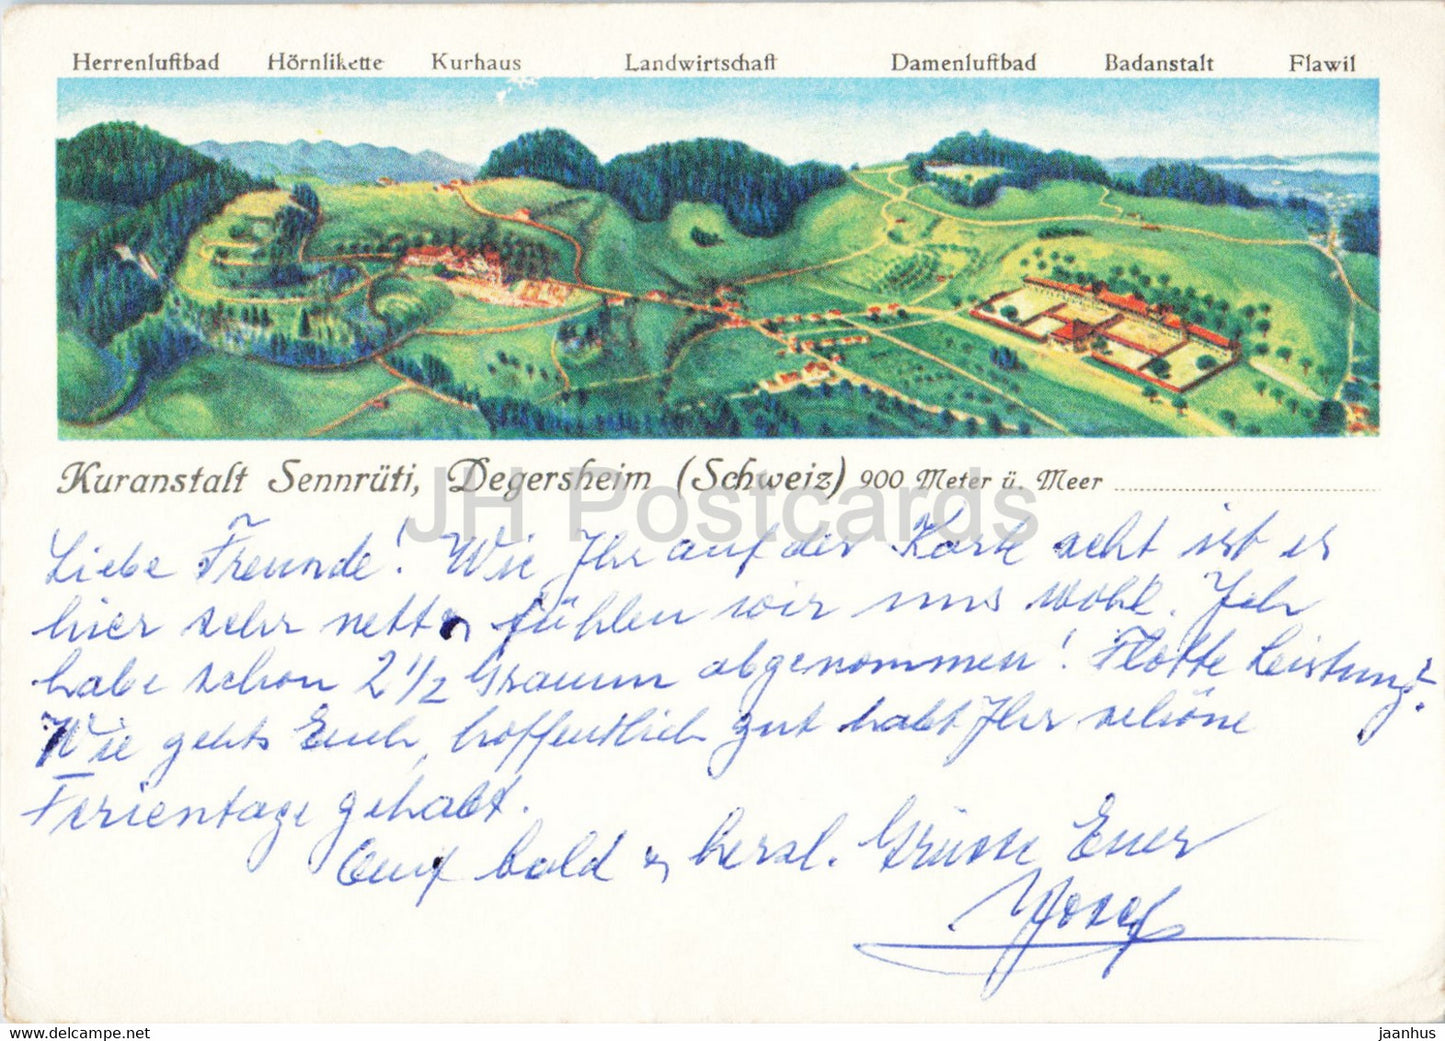 Herrenluftbad Hörnlikette Kurhaus Landwirtschaft Damenluftbad Badanstalt Flawil
Kuranstalt Sennrüti, Degersheim (Schweiz) 900 Meter ü. Meer
JH Postcards
Liebe Freunde! Wie Ihr auf der Karte seht ist es
hier sehr nett & fühlen wir uns wohl. Ich
habe schon 2 1/2 Gramm abgenommen! Flotte Leistung!
Wie gehts Euch, hoffentlich gut habt Ihr schöne
Ferientage gehabt.
Auf bald & herzl. Grüsse Euer
Josef
www.jaanhus-postcards.com
jaanhus